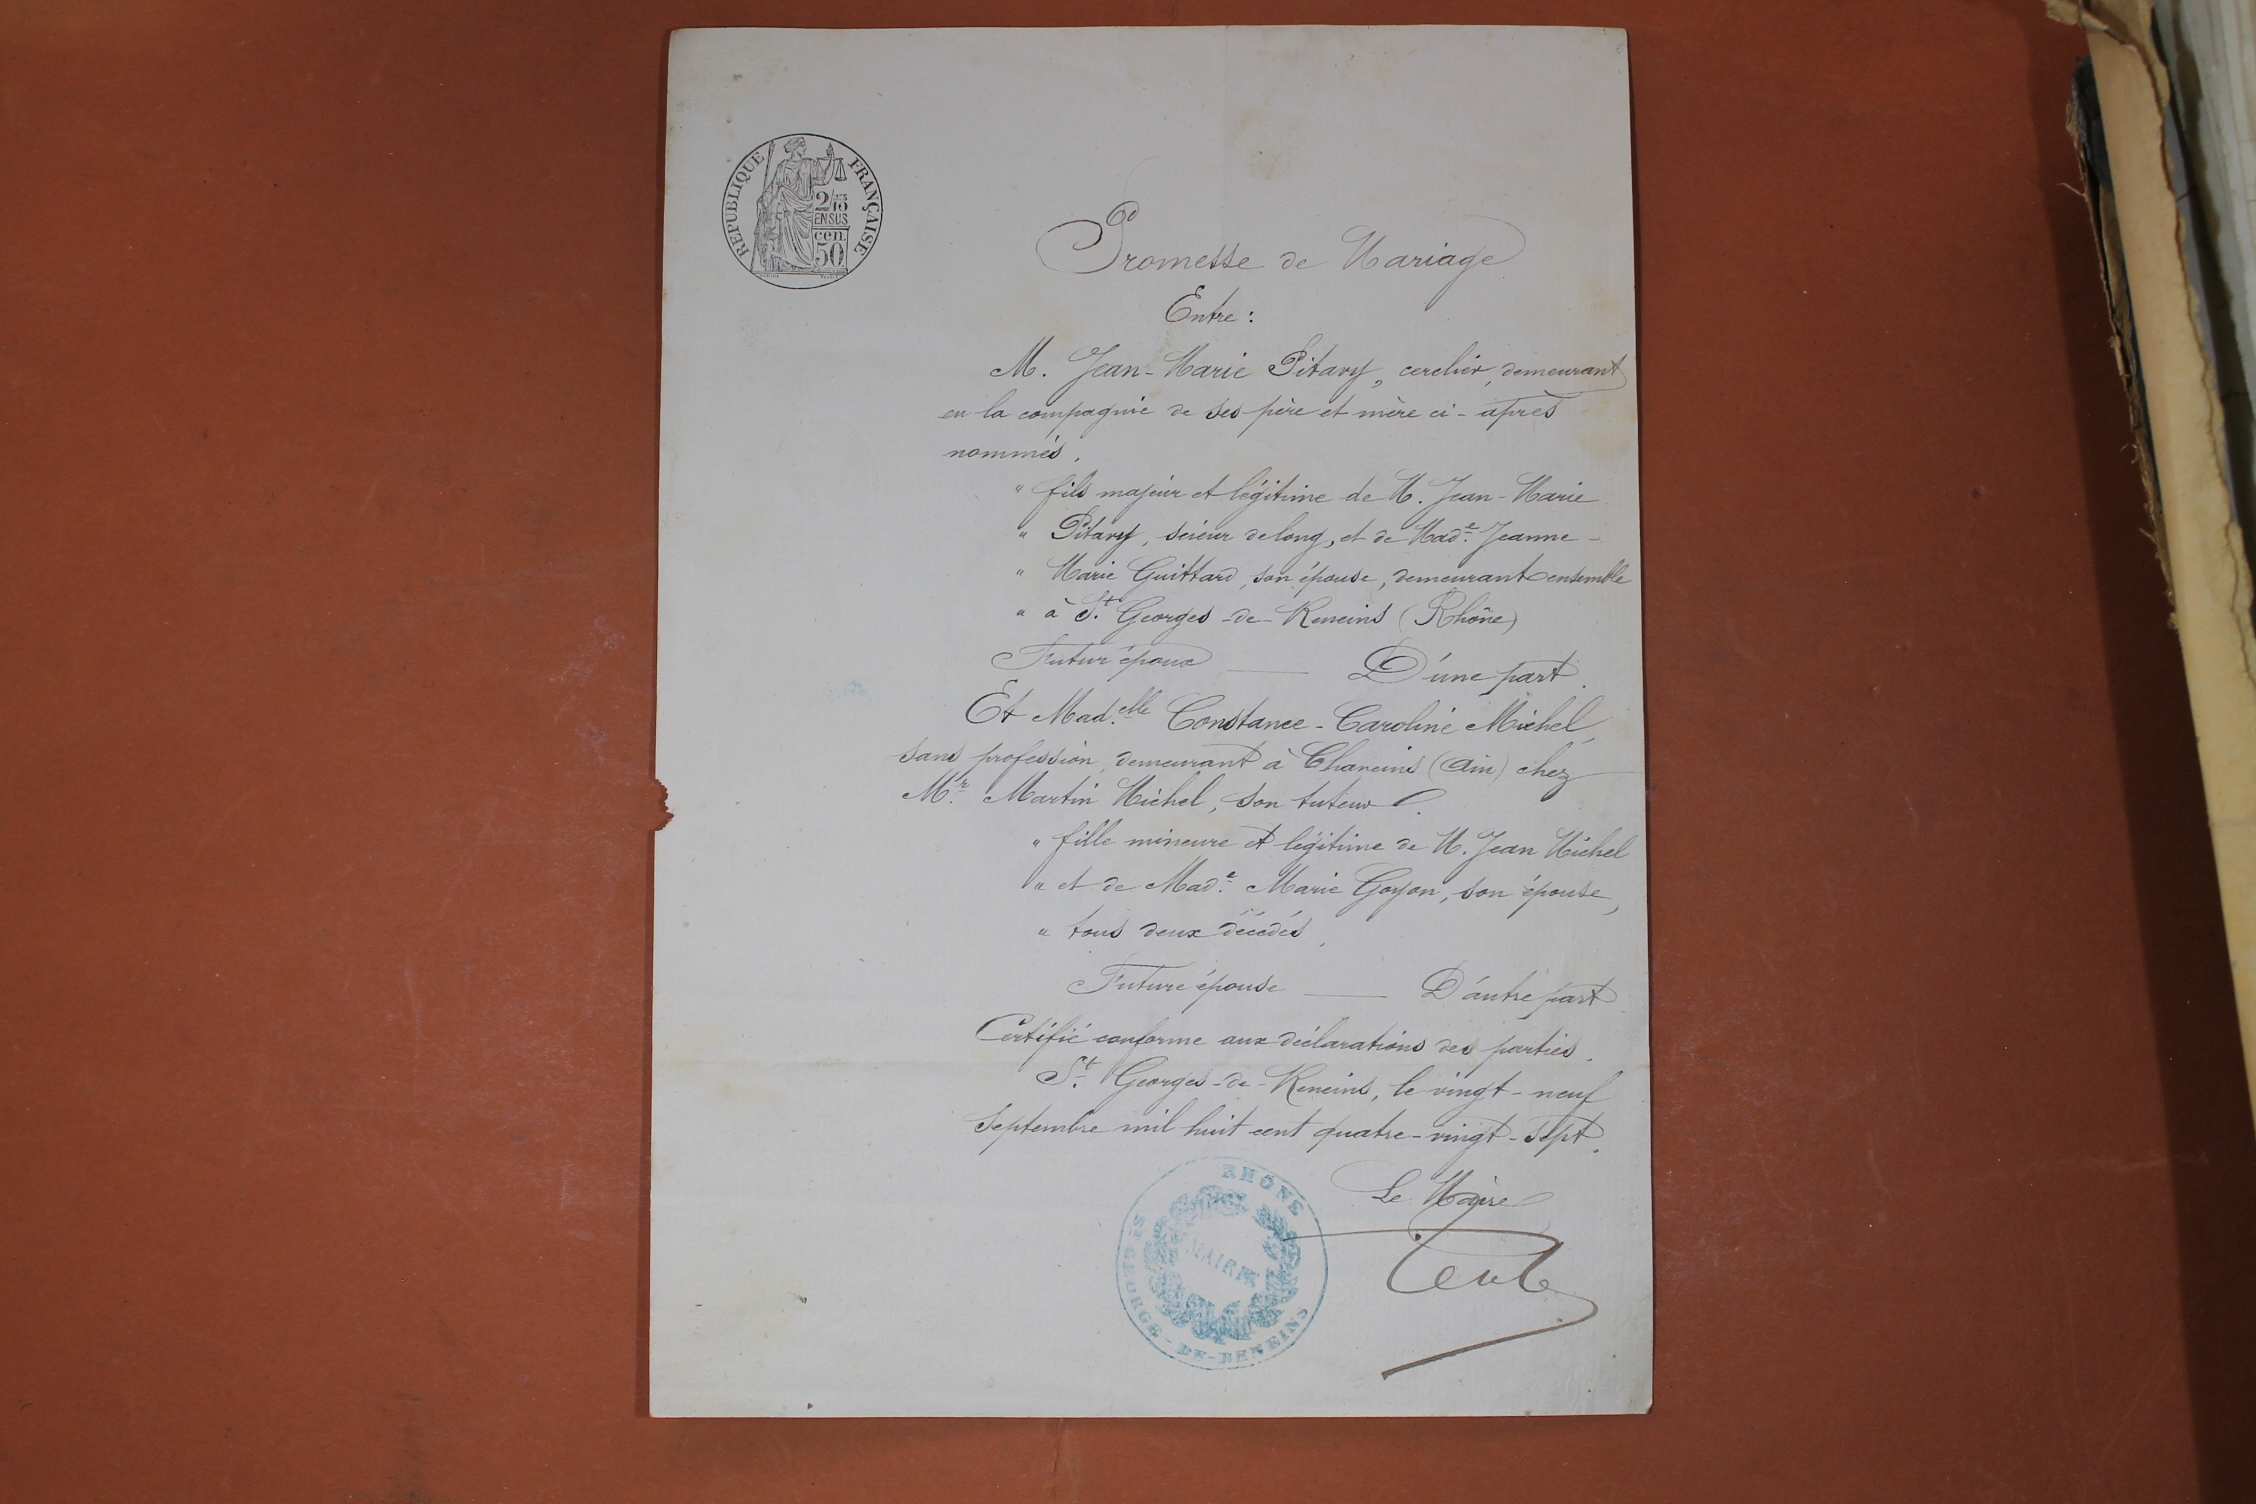 RÉPUBLIQUE FRANÇAISE
2/10
EN SUS
cen.
50
Promesse de Mariage
Entre :
M. Jean-Marie Pitavy, cerclier, demeurant
en la compagnie de ses père et mère ci-après
nommés.
" fils majeur et légitime de M. Jean-Marie
" Pitavy, scieur de long, et de Mad.e Jeanne-
" Marie Guittard, son épouse, demeurant ensemble
" à St. Georges-de-Reneins (Rhône)
Futur époux — D'une part.
Et Mad.elle Constance-Caroline Michel,
sans profession, demeurant à Chaneins (Ain) chez
Mr. Martin Michel, son tuteur.
" fille mineure et légitime de M. Jean Michel
" et de Mad.e Marie Goyon, son épouse,
" tous deux décédés,
Future épouse — D'autre part
Certifié conforme aux déclarations des parties.
St. Georges-de-Reneins, le vingt-neuf
Septembre mil huit cent quatre-vingt-sept.
Le Maire
RHÔNE
MAIRIE
ST GEORGES-DE-RENEINS